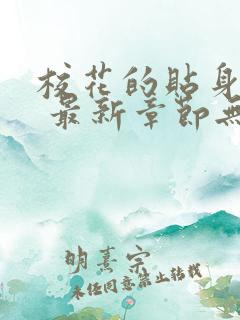 校花的貼身
最新章節無
明熹宗
未经同意禁止转载